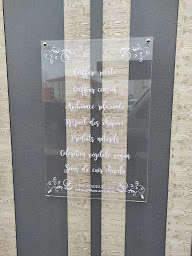 Coiffure mixte
Coiffeur conseil
Ambiance relaxante
Respect des cheveux
Produits naturels
Coloration végétale vegan
Soins du cuir chevelu